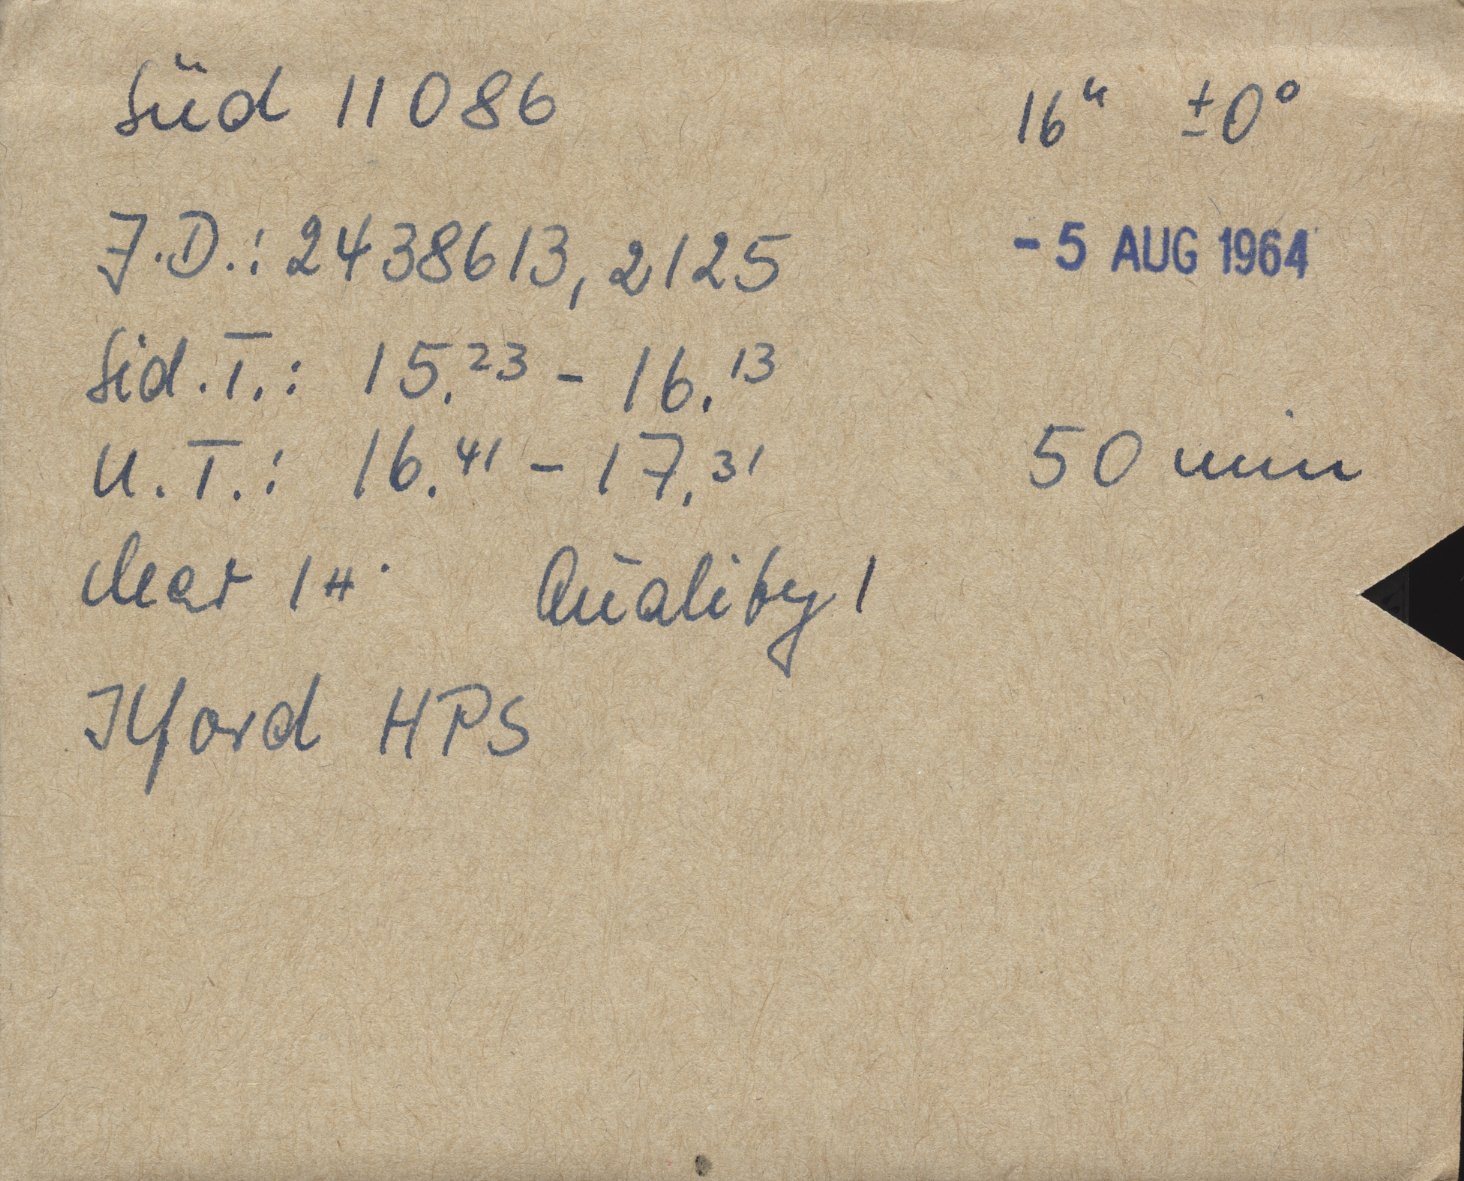 Süd 11086 16ʰ ±0°
J.D.: 2438613,2125 -5 AUG 1964
Sid.T.: 15.²³ - 16.¹³
U.T.: 16.⁴¹ - 17.³¹ 50 min
clear Quality 1
Ilford HPS